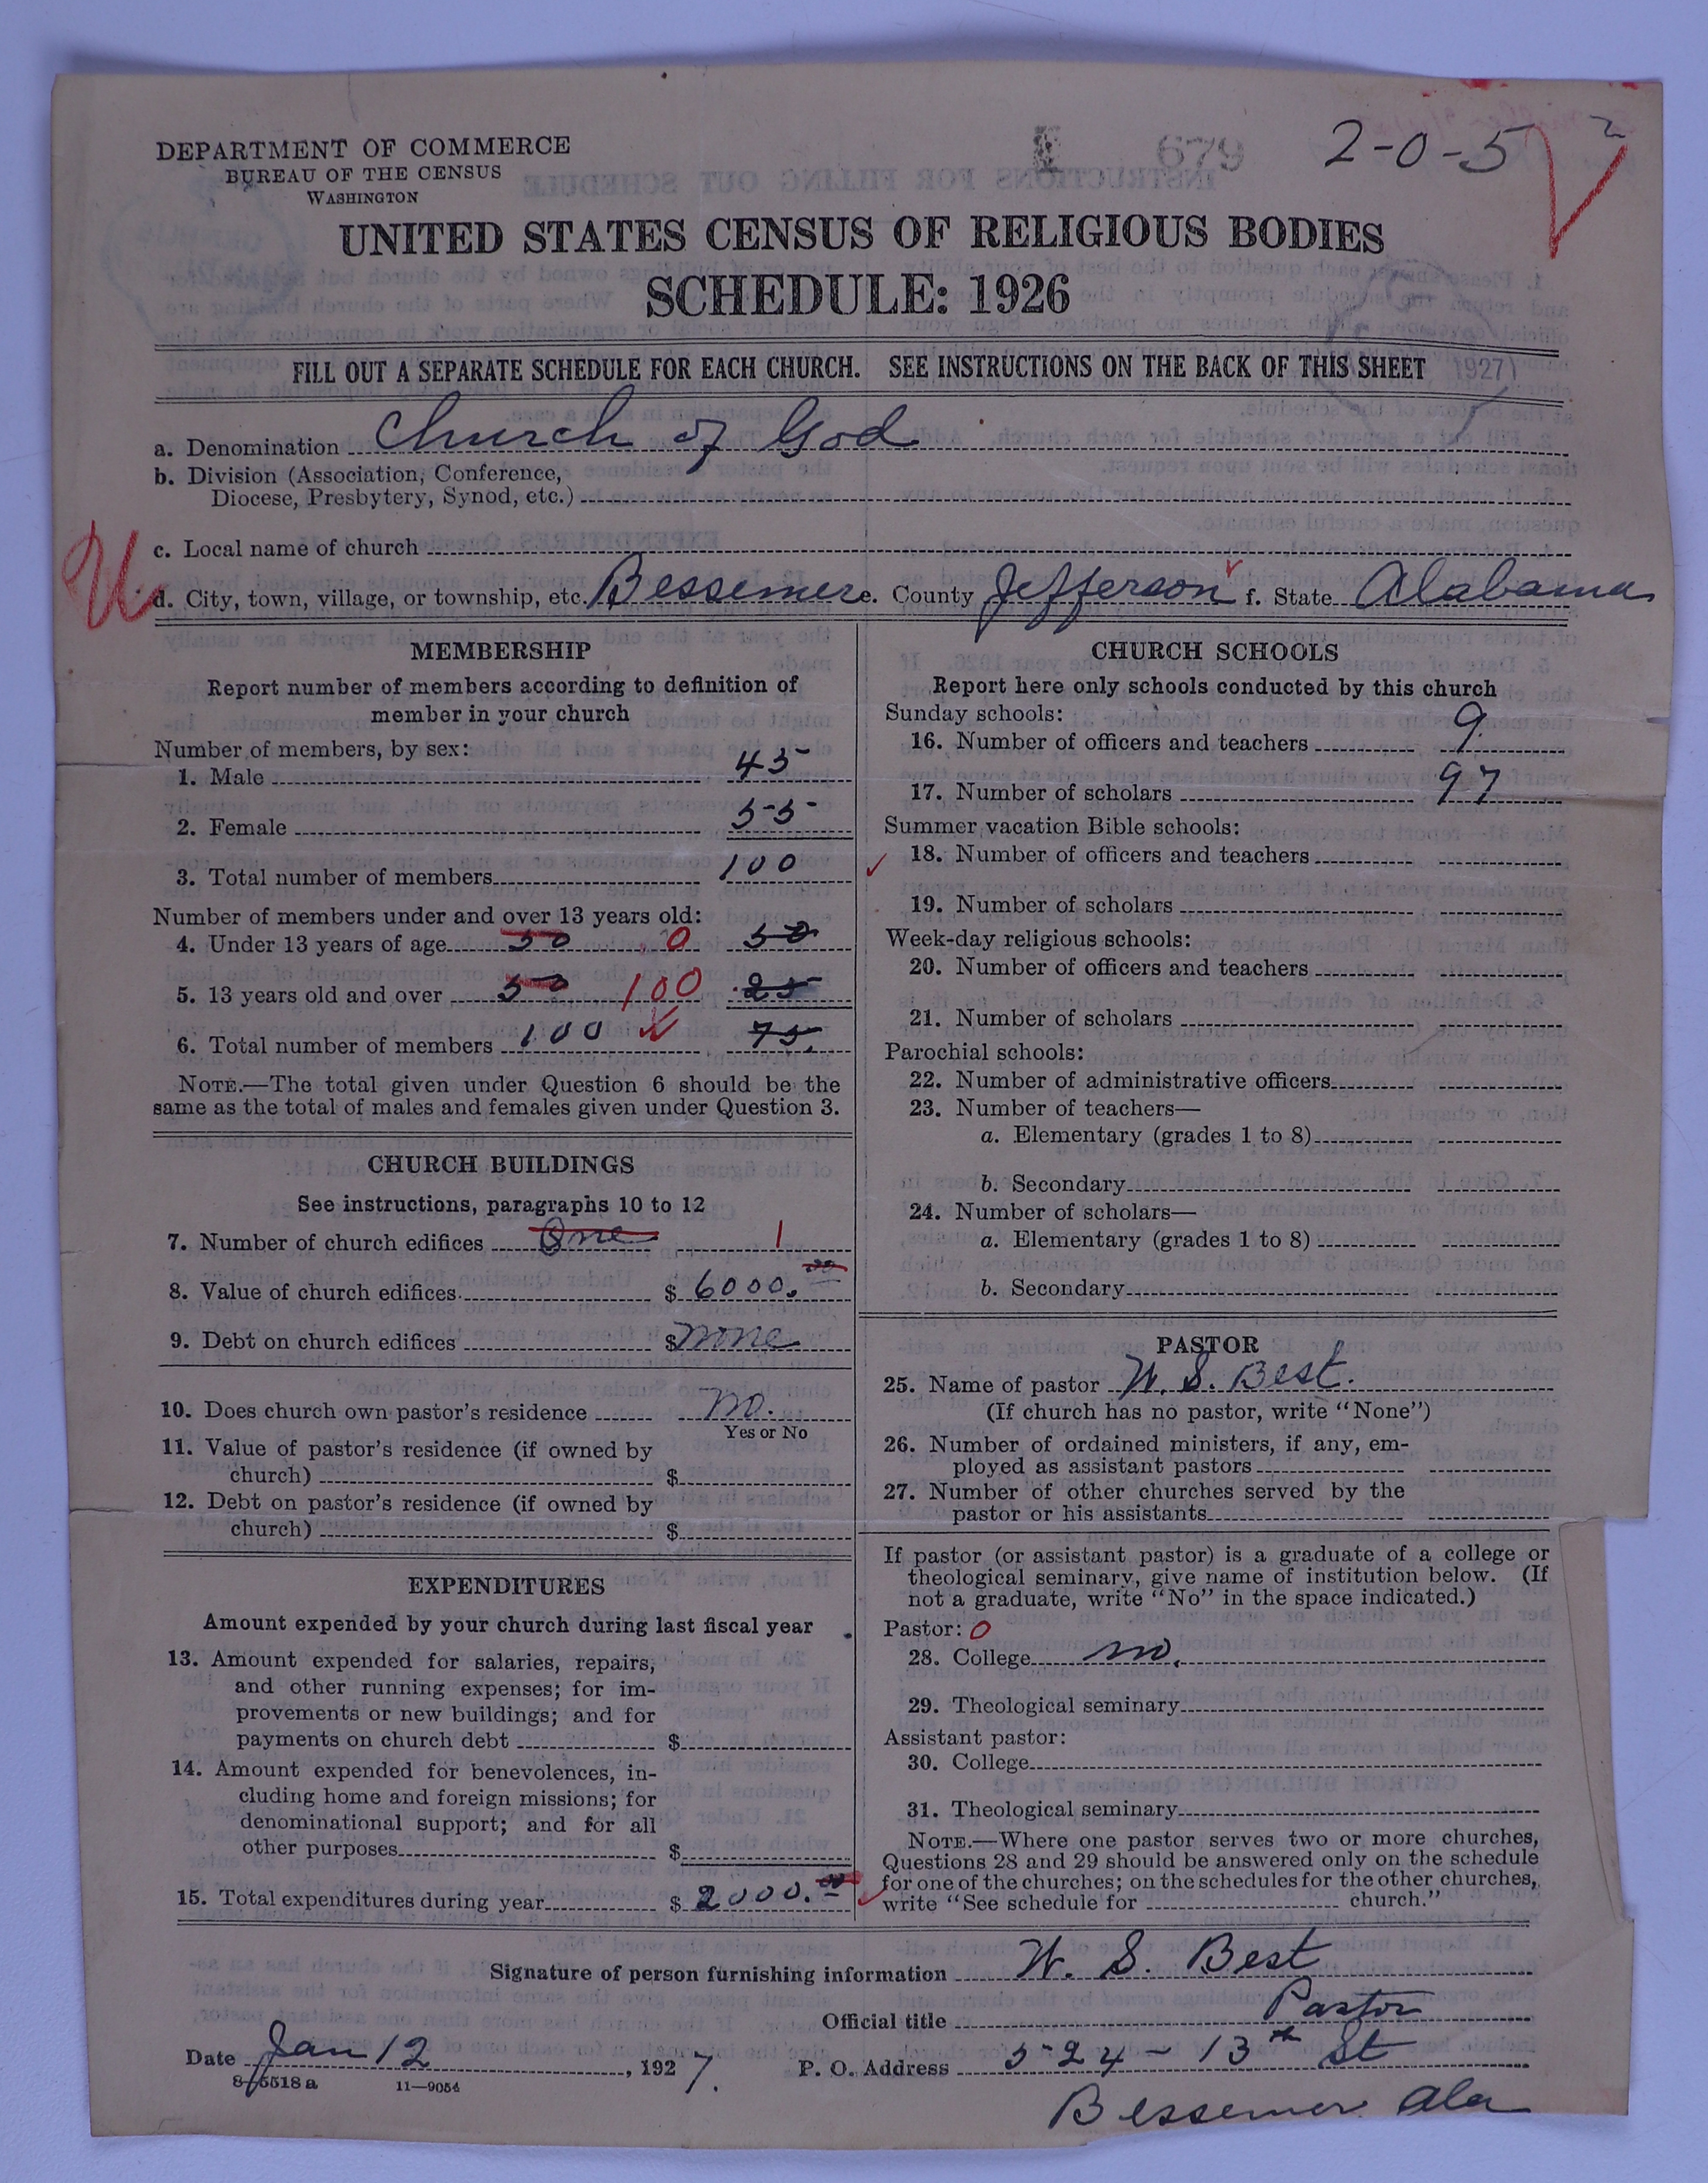 DEPARTMENT OF COMMERCE
BUREAU OF THE CENSUS
WASHINGTON
679
2-0-5
UNITED STATES CENSUS OF RELIGIOUS BODIES
SCHEDULE: 1926
FILL OUT A SEPARATE SCHEDULE FOR EACH CHURCH. SEE INSTRUCTIONS ON THE BACK OF THIS SHEET
1927
a. Denomination Church of God
b. Division (Association, Conference,
Diocese, Presbytery, Synod, etc.)
c. Local name of church
U
d. City, town, village, or township, etc. Bessemer e. County Jefferson f. State Alabama
MEMBERSHIP
Report number of members according to definition of
member in your church
Number of members, by sex:
1. Male 45
2. Female 55
3. Total number of members 100
Number of members under and over 13 years old:
4. Under 13 years of age 50 0 50
5. 13 years old and over 50 100 25
6. Total number of members 100 75
NOTE.—The total given under Question 6 should be the
same as the total of males and females given under Question 3.
CHURCH BUILDINGS
See instructions, paragraphs 10 to 12
7. Number of church edifices One 1
8. Value of church edifices $ 6000.00
9. Debt on church edifices $ none
10. Does church own pastor's residence no.
Yes or No
11. Value of pastor's residence (if owned by
church) $
12. Debt on pastor's residence (if owned by
church) $
EXPENDITURES
Amount expended by your church during last fiscal year
13. Amount expended for salaries, repairs,
and other running expenses; for im-
provements or new buildings; and for
payments on church debt $
14. Amount expended for benevolences, in-
cluding home and foreign missions; for
denominational support; and for all
other purposes $
15. Total expenditures during year $ 2000.00
CHURCH SCHOOLS
Report here only schools conducted by this church
Sunday schools:
16. Number of officers and teachers 9
17. Number of scholars 97
Summer vacation Bible schools:
18. Number of officers and teachers
19. Number of scholars
Week-day religious schools:
20. Number of officers and teachers
21. Number of scholars
Parochial schools:
22. Number of administrative officers
23. Number of teachers—
a. Elementary (grades 1 to 8)
b. Secondary
24. Number of scholars—
a. Elementary (grades 1 to 8)
b. Secondary
PASTOR
25. Name of pastor W. S. Best.
(If church has no pastor, write "None")
26. Number of ordained ministers, if any, em-
ployed as assistant pastors
27. Number of other churches served by the
pastor or his assistants
If pastor (or assistant pastor) is a graduate of a college or
theological seminary, give name of institution below. (If
not a graduate, write "No" in the space indicated.)
Pastor: 0
28. College no.
29. Theological seminary
Assistant pastor:
30. College
31. Theological seminary
NOTE.—Where one pastor serves two or more churches,
Questions 28 and 29 should be answered only on the schedule
for one of the churches; on the schedules for the other churches,
write "See schedule for church."
Signature of person furnishing information W. S. Best
Official title Pastor
Date Jan 12, 1927. P. O. Address 524-13th St
8-5518a 11-9054
Bessemer Ala